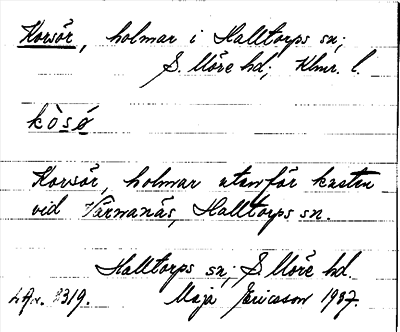 Korsör, holmar i Halltorps sn;
S. Möre hd; Klmr. l.
kòsø
Korsör, holmar utanför kusten
vid Värnanäs, Halltorps sn.
Halltorps sn; S. Möre hd.
LAr. 2319. Maja Ericsson 1937.